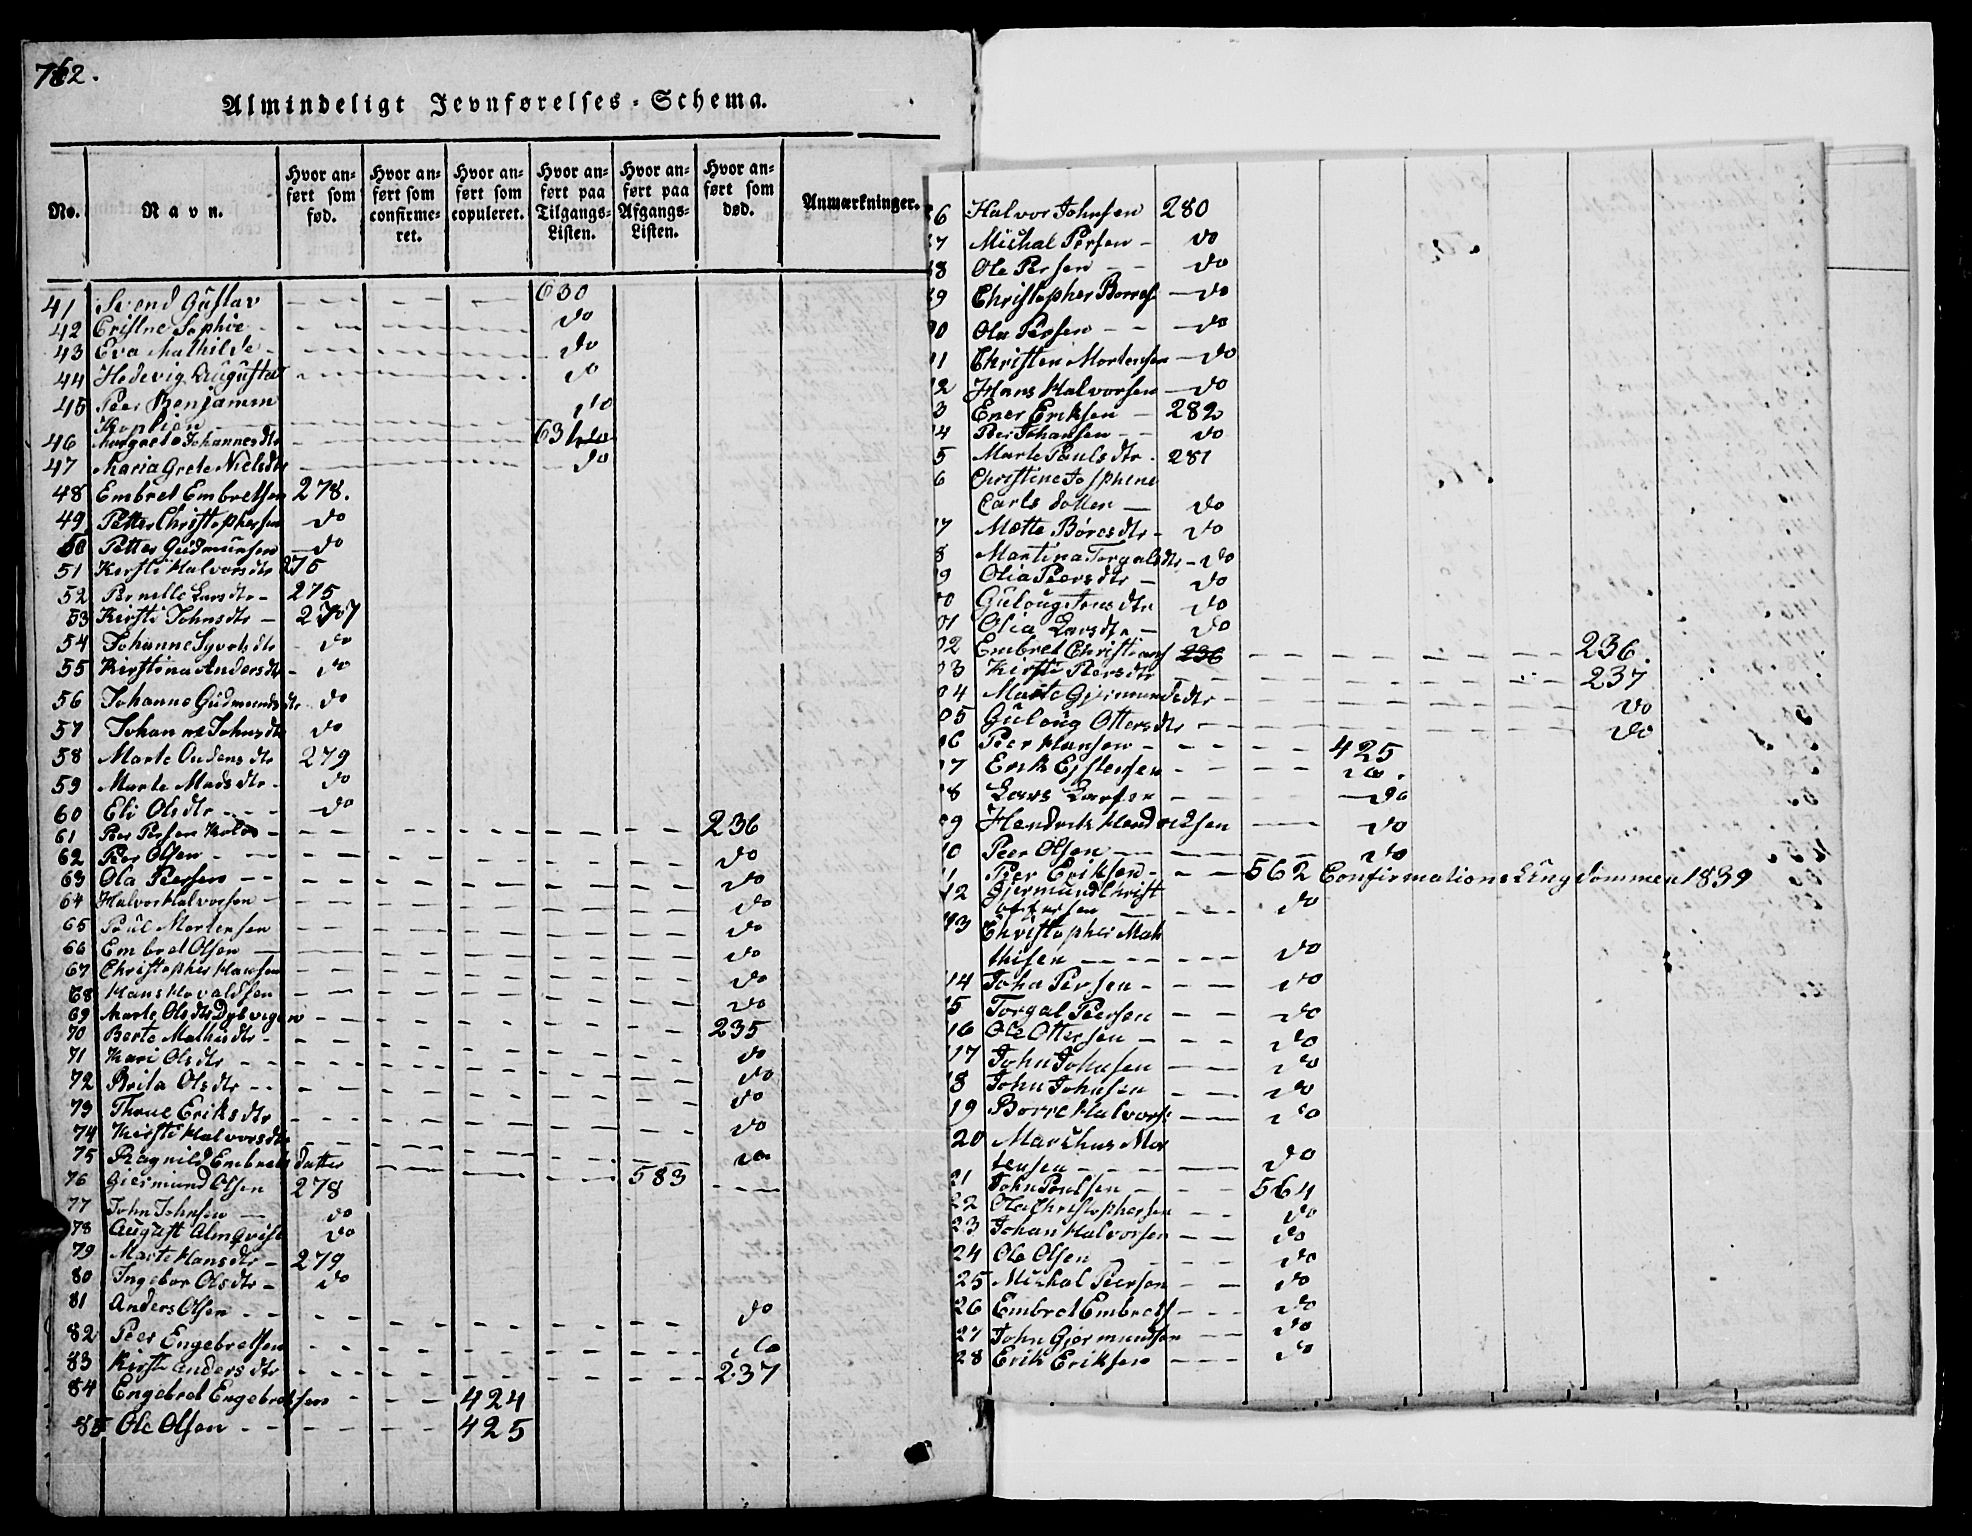 762.
Almindeligt Jevnførelses-Schema.
No. Navn. Hvor anført som fød. Hvor anført som confirmeret. Hvor anført som copuleret. Hvor anført paa Tilgangs-Listen. Hvor anført paa Afgangs-Listen. Hvor anført som død. Anmærkninger.
41 Svend Gustav - - - 630
42 Cristne Sophie - - - do
43 Eva Mathilde - - - do
44 Hedevig Augusta - - - do
45 Peer Benjamin
Koplien - - - do
46 Margrete Johannesdtr - - - 631
47 Maria Grete Nielsdtr - - - do
48 Embret Embretsen 278.
49 Petter Christophersen do
50 Petter Gudmunsen do
51 Kirsti Halvorsdtr 275
52 Pernille Larsdtr - 275
53 Kirsti Johnsdtr - 277
54 Johanne Syvertsdtr - do
55 Kirstina Andersdtr - do
56 Johanne Gudmundsdtr do
57 Johanne Johnsdtr do
58 Marte Oudensdtr 279
59 Marte Madsdtr - do
60 Eli Olsdtr - - do
61 Peer Persen Kolos - - - 236
62 Peer Olsen - - - do
63 Ola Peersen - - - do
64 Halvor Halvorsen - - - do
65 Poul Mortensen - - - do
66 Embret Olsen - - - do
67 Christopher Hansen - - - do
68 Hans Hovaldsen - - - do
69 Marte Olsdtr Dybvigen - - - 235
70 Berte Mathisdtr - - - do
71 Kari Olsdtr - - - do
72 Brita Olsdtr - - - do
73 Thrue Eriksdtr - - - do
74 Kirsti Halvorsdtr - - - do
75 Ragnild Embrets datter - - - 583 - - -
76 Giermund Olsen 278
77 John Johnsen - do
78 August Almqvist do
79 Marte Hansdtr - 279
80 Ingebor Olsdtr - do
81 Anders Olsen - - - do
82 Peer Engebretsen - - - do
83 Kirsti Andersdtr - - - 237
84 Engebret Engebretsen - - - 424
85 Ole Olsen - - - 425
86 Halvor Johnsen 280
87 Michal Persen - do
88 Ole Persen - - do
89 Christopher Borres - do
90 Ola Persen - - do
91 Christen Mortensen - do
92 Hans Halvorsen - do
3 Ener Eriksen - 282
4 Peer Johansen - - do
5 Marte Paulsdtr. 281
6 Christine Josphine
Carls datter - do
7 Mætte Börresdtr - do
8 Martina Torgalsdtr - do
9 Olia Peersdtr - do
00 Guloug Jensdtr do
01 Olia Larsdtr - do
02 Embret Christians 236 - - - 236.
03 Kirsti Peersdtr - - - 237
04 Marte Gjermundsdtr - - - do
05 Guloug Ottersdtr - - - do
06 Peer Hansen - - - 425
07 Erik Ejstensen - - - do.
08 Lars Larsen - - - do
09 Hendrik Hendricksen - - - do
10 Peer Olsen - - - do
11 Peer Eriksen - - - 562 Confirmations Ungdommen 1839
12 Gjermund Christ
offersen - - - do
13 Christopher Mat
thisen - - - do
14 John Persen - - - do
15 Torgal Peersen - do
16 Ole Ottersen - - - do
17 John Johnsen - - - do
18 John Johnsen - - - do
19 Borre Halvors: - - do
20 Marchus Mor
tensen - - - do
21 John Poulsen - - - 564
22 Ole Christophersen - - do
23 Johan Halvorsen - - do
24 Ole Olsen - - - do
25 Michal Peersen - - do
26 Embret Embrets - - - do
27 John Gjermundsen - - do
28 Erik Eriksen - - - do